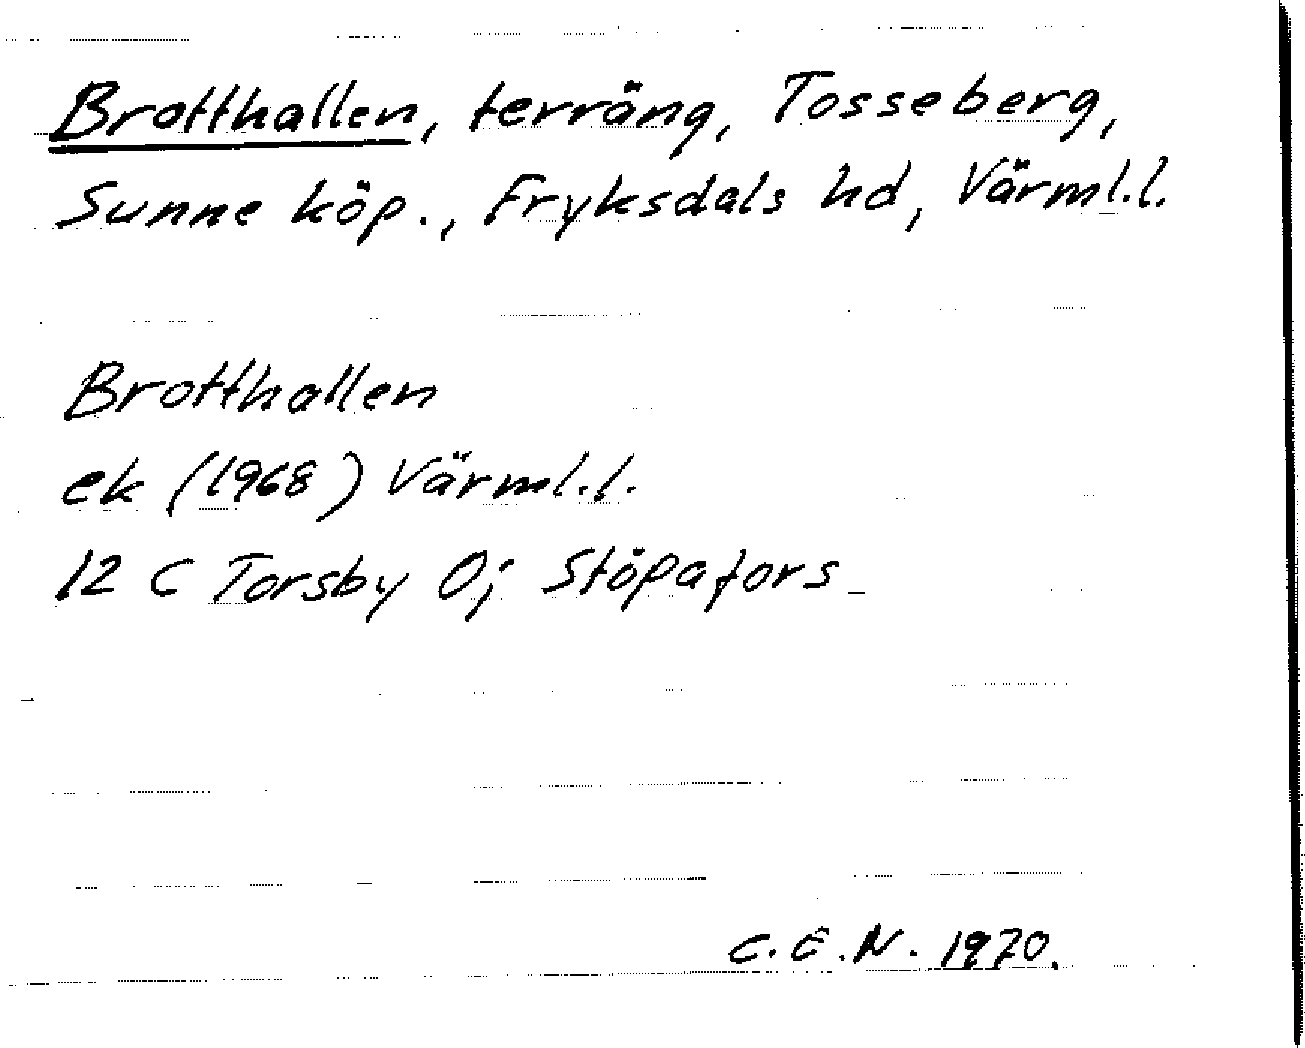 Brotthallen, terräng, Tosseberg,
Sunne köp., Fryksdals hd, Värml.l.
Brotthallen
ek (1968) Värml.l.
12 C Torsby Oj Stöpafors
C.E.N. 1970.